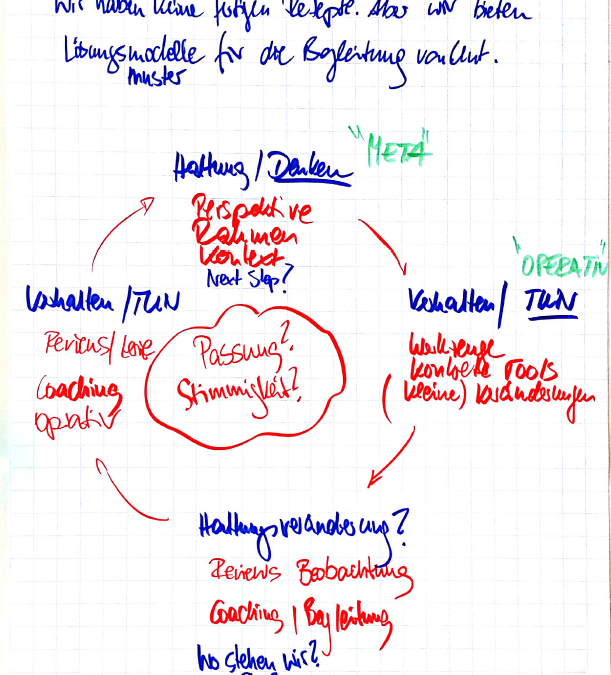 Wir haben keine fertigen Rezepte. Aber wir bieten
Lösungsmodelle für die Begleitung von
muster
"META"
Haltung / Denken
Perspektive
Rahmen
Kontext
Next Step?
"OPERATIV"
Verhalten / TUN
Reviews /
Coaching
operativ
Passung?
Stimmigkeit?
Verhalten / TUN
Werkzeuge
konkrete Tools
(kleine) Veränderungen
Haltungsveränderung?
Reviews Beobachtung
Coaching / Begleitung
Wo stehen wir?